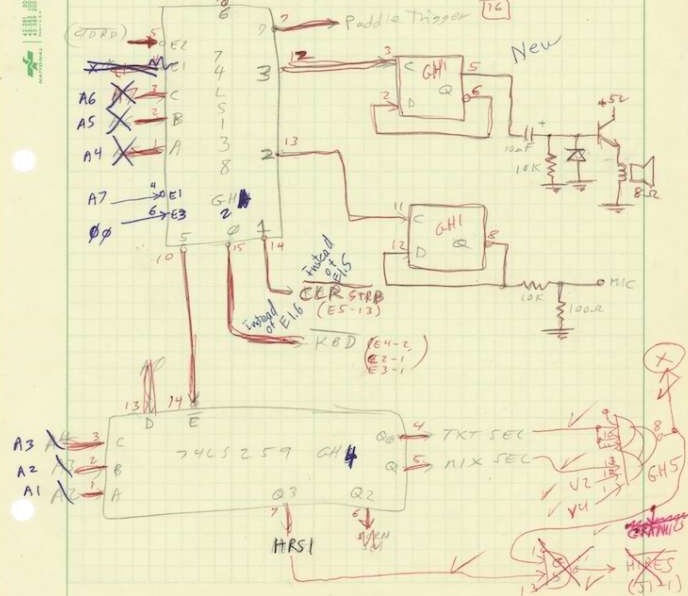 16
6
7 7 Paddle Trigger
New
5 E2
E1
A6 3 C
A5 2 B
A4 1 A
A7 4 E1
ØØ 6 E3
7
4
L
S
1
3
8
GH
2
3 12
2 13
5 Ø 1
10 15 14
3 C GH1 5
2 D Q 6
+5V
10K
8Ω
11 C GH1
12 D Q 8
10K MIC
100Ω
Instead of E1.5
CLR STRB
(E5-13)
Instead of E1.6
KBD (E4-2
E2-1
E3-1)
X
13 14
D E
A3 3 C
A2 2 B
A1 1 A
74LS259 GH4
4 TXT SEL
Q 5 MIX SEL
Q3 Q2
7 6
HRS1
8
GH5
V2
V4
GRAPHICS
HIRES
(J1-1)